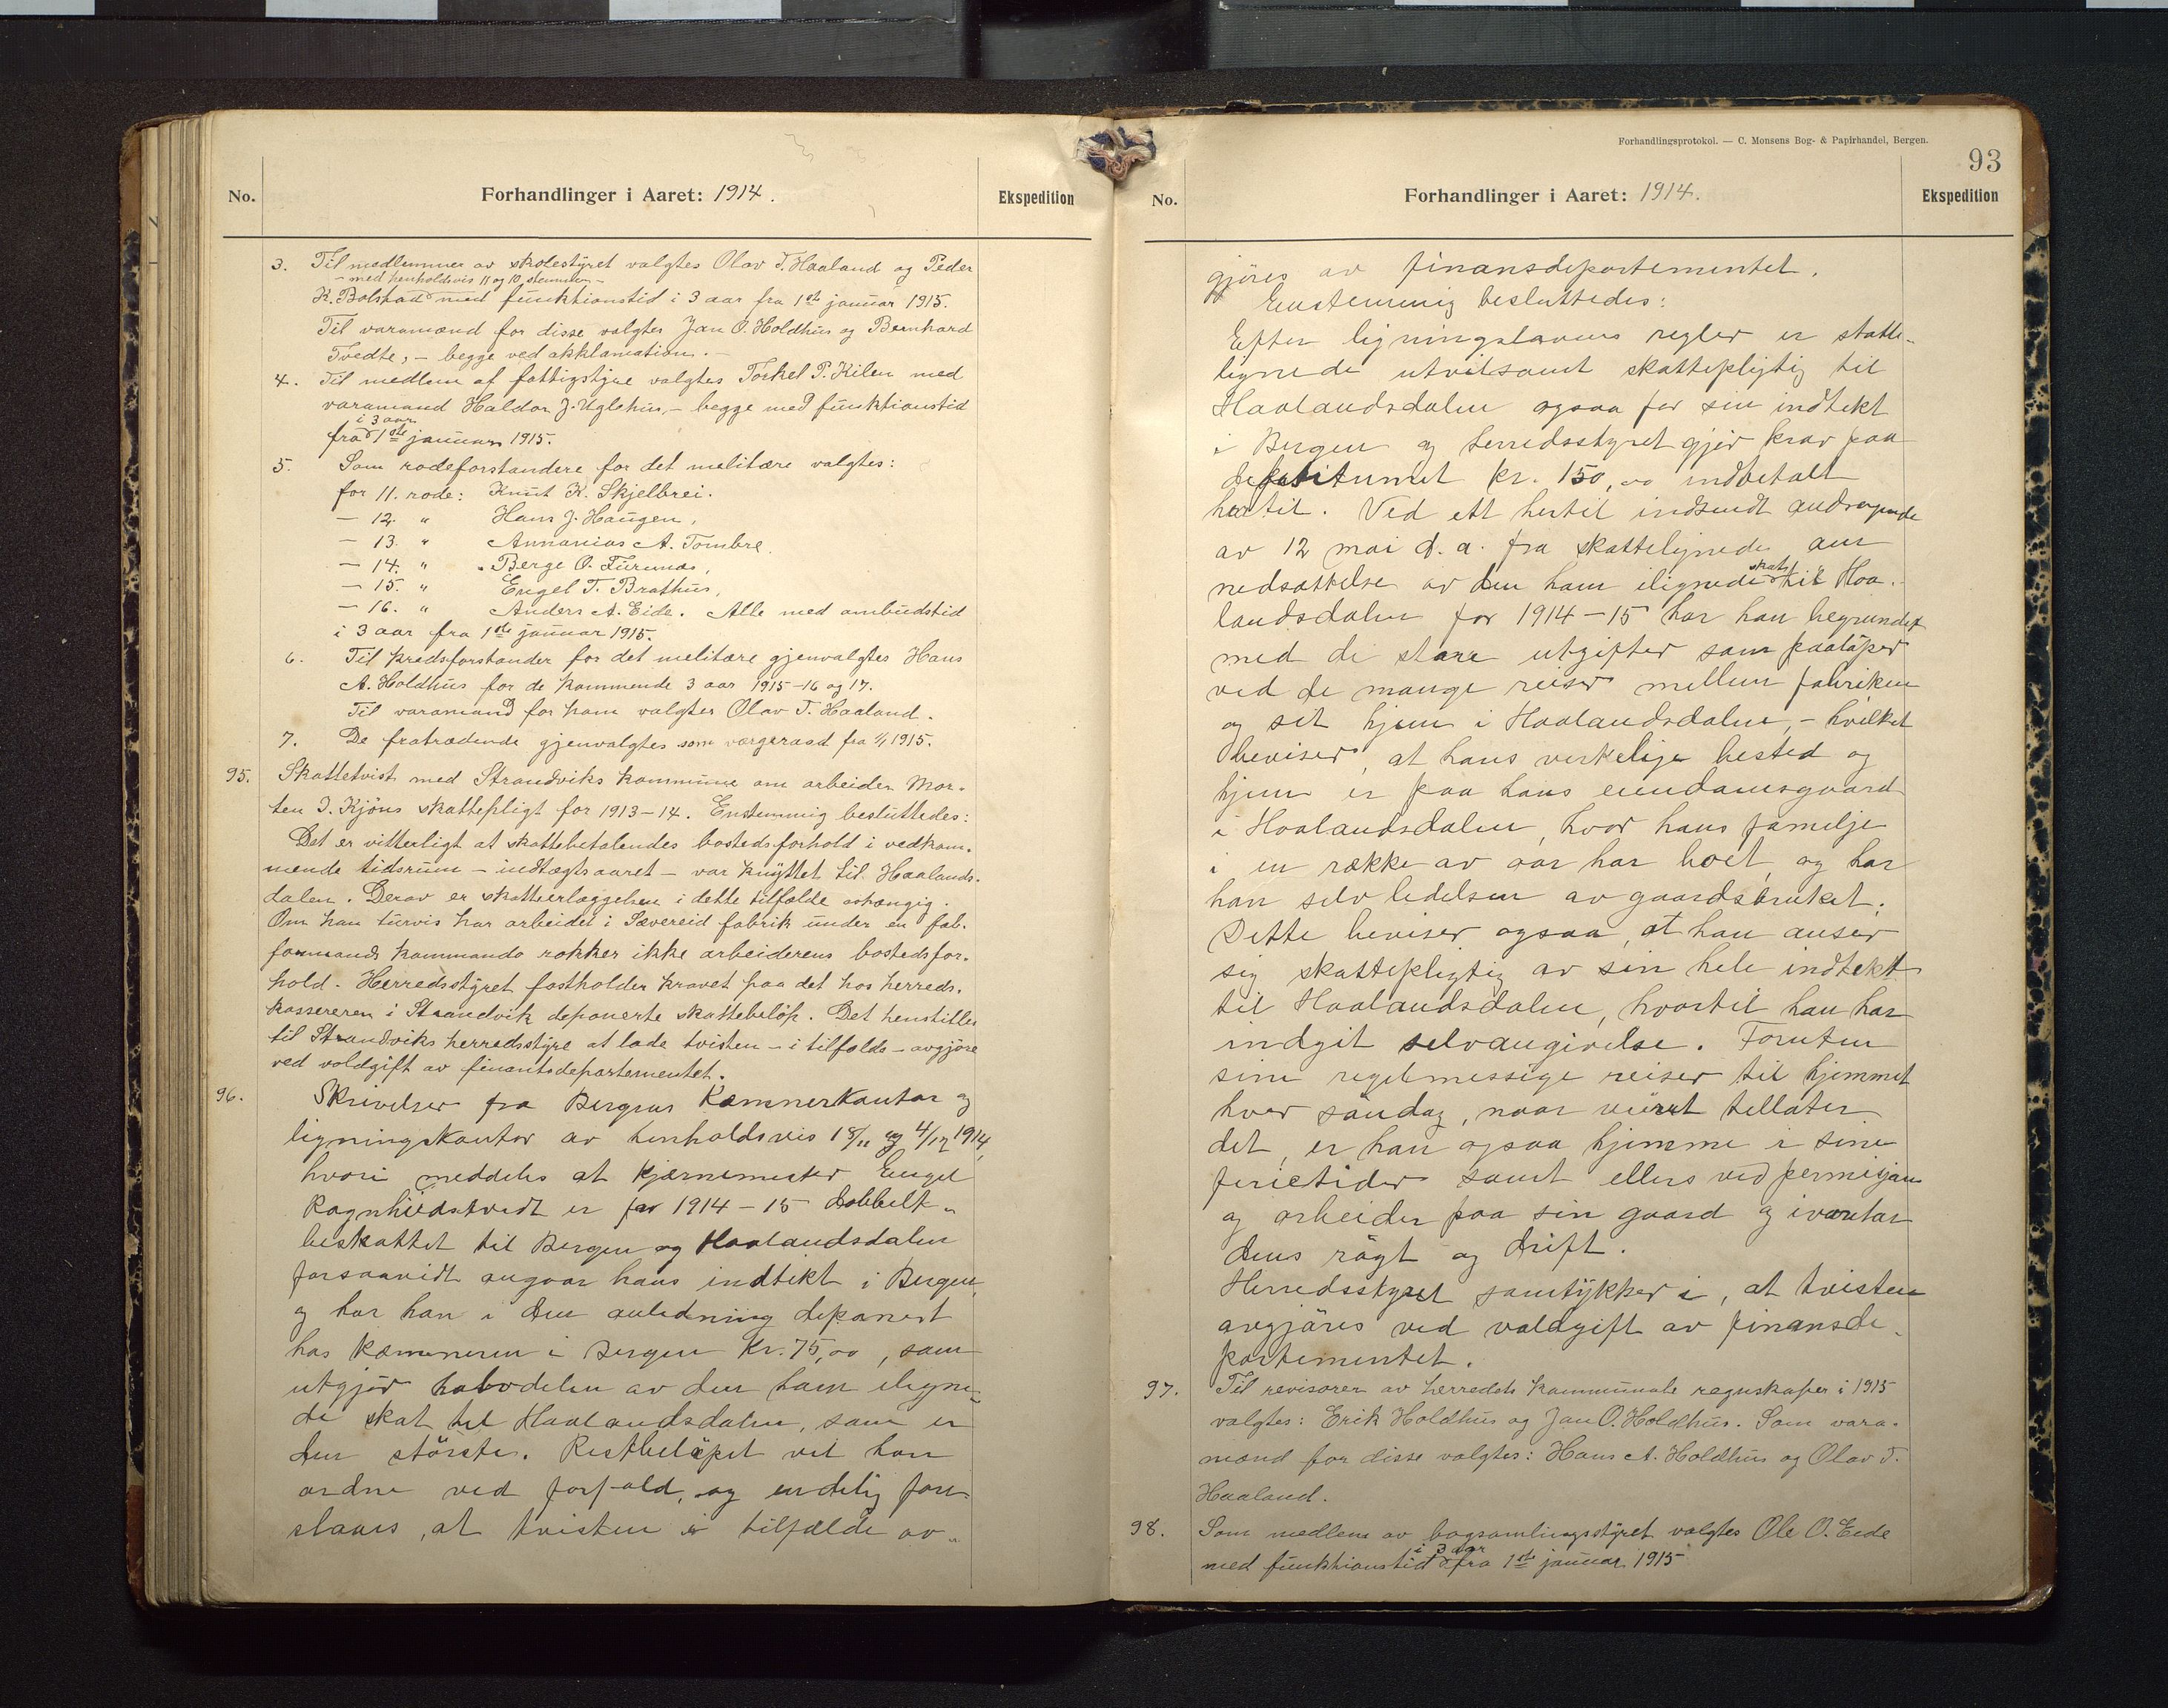 No.
Forhandlinger i Aaret: 1914.
Ekspedition
3. Til medlemmer av skolestyret valgtes Olav T. Haaland og Peder
- med henholdsvis 11 og 10 stemmer -
K. Bolstad med funktionstid i 3 aar fra 1ste januar 1915.
Til varamænd for disse valgtes Jan O. Holdhus og Bernhard
Tvedte, - begge ved akklamation. -
4. Til medlem af fattigstyre valgtes Torkel P. Kilen med
varamand Haldor J. Uglehus, - begge med funktionstid
i 3 aar
fra 1ste januar 1915.
5. Som rodeforstandere for det militære valgtes:
for 11. rode: Knut K. Skjelbrei.
- 12. " Hans J. Haugen,
- 13. " Annanias A. Tombre.
- 14. " Berge O. Furunes,
- 15. " Engel T. Brathus,
- 16. " Anders A. Eide. Alle med ombudstid
i 3 aar fra 1ste januar 1915.
6. Til kredsforstander for det militære gjenvalgtes Hans
A. Holdhus for de kommende 3 aar 1915-16 og 17.
Til varamand for ham valgtes Olav T. Haaland.
7. De fratrædende gjenvalgtes som vergeraad fra 1/1 1915.
95. Skattetvist med Strandviks kommune om arbeider Mor-
ten I. Kjöns skattepligt for 1913-14. Enstemmig besluttedes:
Det er vitterligt at skattebetalendes bostedsforhold i vedkom-
mende tidsrum - indtægtsaaret - var knyttet til Haalands-
dalen. Derav er skatteerlæggelsen i dette tilfælde avhængig.
Om han turvis har arbeidet i Sævereid fabrik under en fab.
formands kommando rokker ikke arbeiderens bostedsfor-
hold. Herredsstyret fastholder kravet paa det hos herreds-
kassereren i Strandvik deponerte skattebelöp. Det henstilles
til Strandviks herredsstyre at lade tvisten - i tilfælde - avgjöre
ved voldgift av finantsdepartementet.
96. Skrivelser fra Bergens Kæmnerkontor og
ligningskontor av henholdsvis 18/11 og 4/12 1914,
hvori meddeles at kjærnemester Engel
Ragnhildstvedt er for 1914-15 dobbelt-
beskattet til Bergen og Haalandsdalen
forsaavidt angaar hans indtekt i Bergen,
og har han i den anledning deponert
hos kæmneren i Bergen kr. 75,00, som
utgjör halvdelen av den ham iligne-
de skat til Haalandsdalen, som er
den störste. Restbelöpet vil han
ordne ved forfald, og endelig fore-
slaaes, at tvisten i tilfælde av-
Forhandlingsprotokol. — C. Monsens Bog- & Papirhandel, Bergen.
93
No.
Forhandlinger i Aaret: 1914.
Ekspedition
gjöres av finansdepartementet.
Enstemmig besluttedes:
Efter ligningslovens regler er skatte-
lignede utvilsomt skattepligtig til
Haalandsdalen ogsaa for sin indtekt
i Bergen og herredsstyret gjör krav paa
depositumet kr. 150,00 indbetalt
hertil. Ved ett hertil indsendt andragende
av 12 mai d.a. fra skattelignede om
nedsættelse av den ham ilignede skat til Haa-
landsdalen for 1914-15 har han begrundet
med de store utgifter som paalöper
ved de mange reiser mellem fabriken
og sit hjem i Haalandsdalen, - hvilket
beviser, at hans verkelige bosted og
hjem er paa hans eiendomsgaard
i Haalandsdalen, hvor hans familje
i en række av aar har boet, og har
han selv ledelsen av gaardsbruket.
Dette beviser ogsaa, at han anser
sig skattepligtig av sin hele indtekt
til Haalandsdalen, hvortil han har
indgit selvangivelse. Foruten
sine regelmessige reiser til hjemmet
hver söndag, naar veiret tillater
det, er han ogsaa hjemme i sine
ferietider samt ellers ved permisjon
og arbeider paa sin gaard og ivaretar
dens rögt og drift.
Herredsstyret samtykker i, at tvisten
avgjöres ved voldgift av finansde-
partementet.
97. Til revisorer av herredets kommunale regnskaper i 1915
valgtes: Erik Holdhus og Jan O. Holdhus. Som vara-
mænd for disse valgtes: Hans A. Holdhus og Olav T.
Haaland.
98. Som medlem av bogsamlingsstyret valgtes Ole O. Eide
i 3 aar
med funktionstid fra 1ste januar 1915